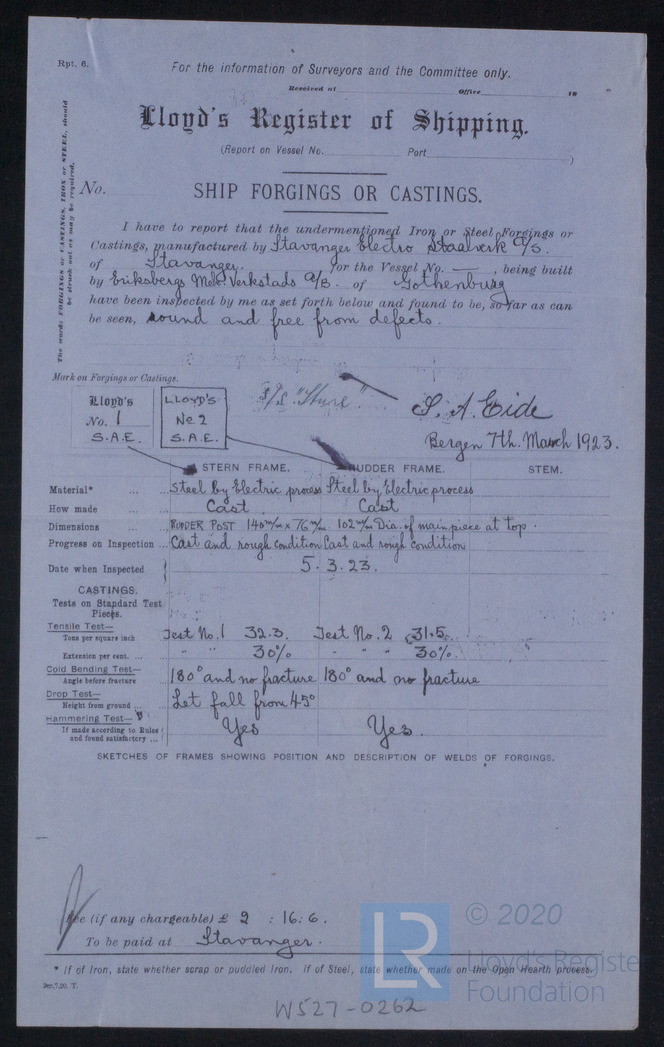 Rpt. 6.
For the information of Surveyors and the Committee only.
Received at Office 19
Lloyd's Register of Shipping.
(Report on Vessel No. Port )
The words FORGINGS or CASTINGS, IRON or STEEL, should
be struck out as may be required.
No.
SHIP FORGINGS OR CASTINGS.
I have to report that the undermentioned Iron or Steel Forgings or
Castings, manufactured by Stavanger Electro Staalverk A/S.
of Stavanger. for the Vessel No. — , being built
by Eriksbergs Mek. Verkstads A/B. of Gothenburg
have been inspected by me as set forth below and found to be, so far as can
be seen, sound and free from defects.
Mark on Forgings or Castings.
Lloyd's
No. 1
S.A.E.
LLOYD'S
No 2
S.A.E.
S/S "Sture"
S. A. Eide
Bergen 7th. March 1923.
STERN FRAME. RUDDER FRAME. STEM.
Material* ... ... Steel by Electric process Steel by Electric process
How made ... Cast Cast
Dimensions ... ... RUDDER POST 140 m/m x 76 m/m 102 m/m Dia. of mainpiece at top.
Progress on Inspection ... Cast and rough condition Cast and rough condition
Date when Inspected 5.3.23.
CASTINGS.
Tests on Standard Test
Pieces.
Tensile Test—
Tons per square inch Test No. 1 32.3. Test No. 2 31.5.
Extension per cent. ... " " 30% " " 30%.
Cold Bending Test—
Angle before fracture 180° and no fracture 180° and no fracture
Drop Test—
Height from ground ... Let fall from 45°
Hammering Test—
If made according to Rules
and found satisfactory ... Yes Yes.
SKETCHES OF FRAMES SHOWING POSITION AND DESCRIPTION OF WELDS OF FORGINGS.
Fee (if any chargeable) £ 2 : 16 : 6.
To be paid at Stavanger.
* If of Iron, state whether scrap or puddled Iron. If of Steel, state whether made on the Open Hearth process.
W527-0262
LR
© 2020
Lloyd's Register
Foundation